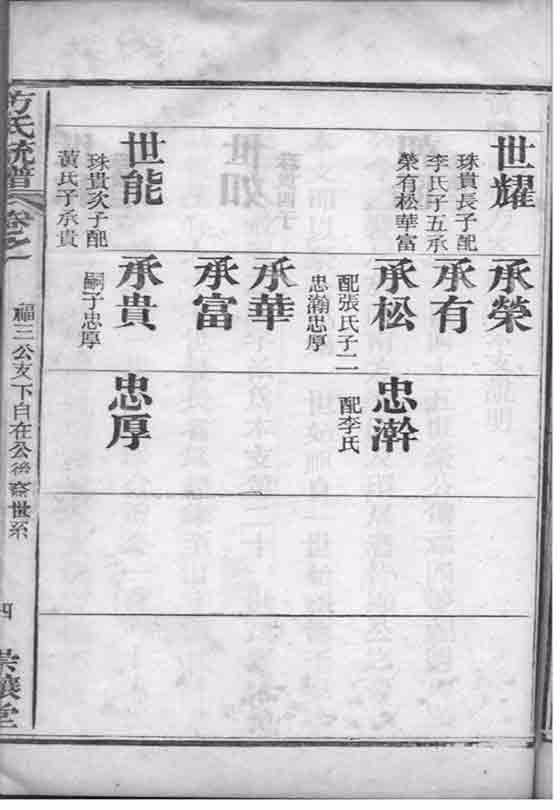 世耀
珠貴長子配
李氏子五承
榮有松華富
世能
珠貴次子配
黃氏子承貴
承榮
承有
承松
配張氏子二
忠瀚忠厚
承華
承富
承貴
嗣子忠厚
忠澣
配李氏
忠厚
方氏統譜
卷之一
福三公支下自在公後裔世系
四
崇讓堂